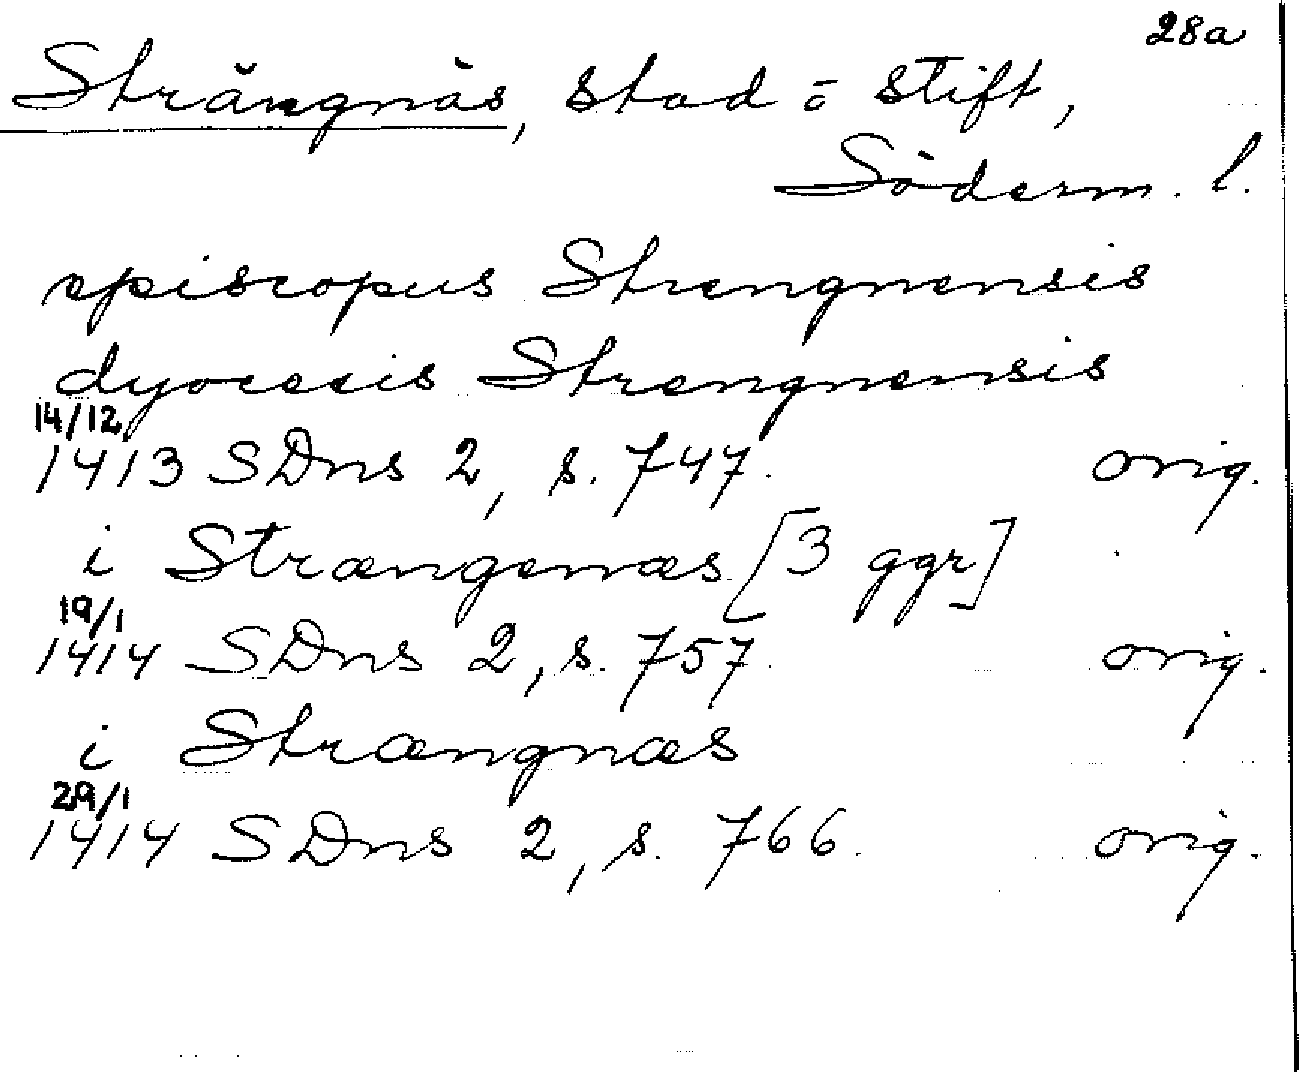 28a
Strängnäs, stad o stift,
Söderm. l.
episcopus Strengnensis
dyocesis Strengnensis
14/12
1413 SDns 2, s. 747. orig.
i Strængenæs [3 ggr]
19/1
1414 SDns 2, s. 757. orig.
i Strængnæs
29/1
1414 SDns 2, s. 766. orig.